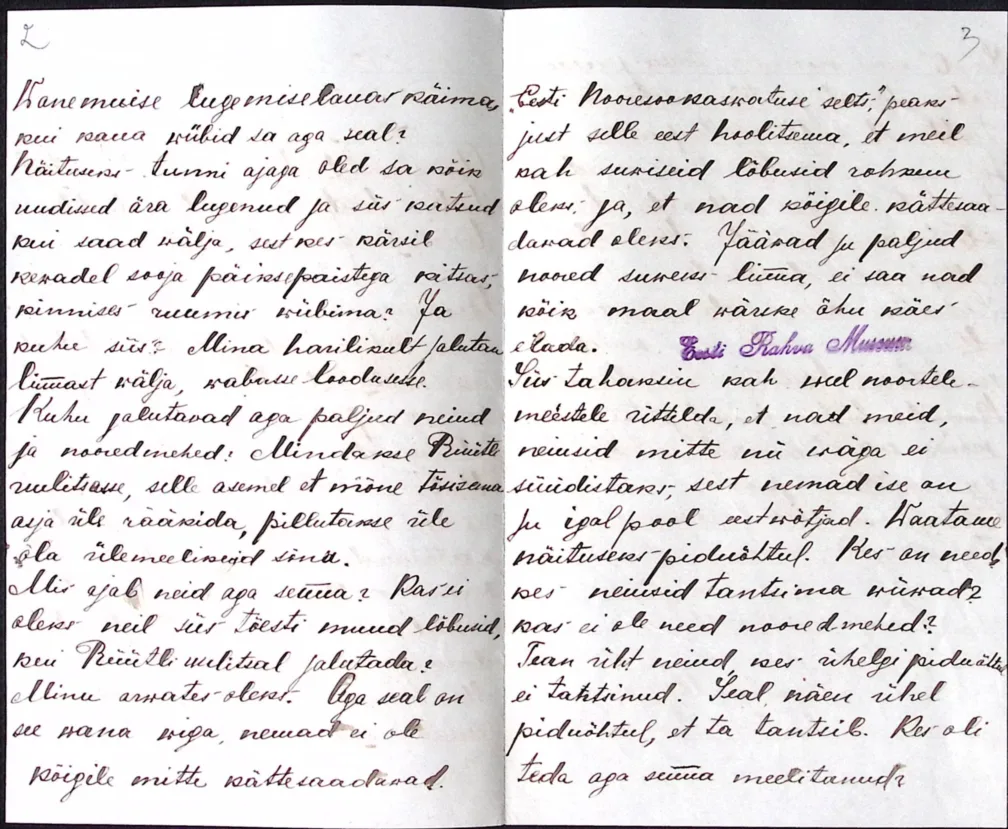 2
Wanemuise lugemiselauas käima,
kui kaua wiibid sa aga seal?
Näituseks- tunni ajaga oled sa kõik
uudissed ära lugenud ja siis katsud
kui saad wälja, sest kes kärsil
kewadel sooja päiksepaistega kitsas,
kinnises ruumis wiibima? Ja
kuhu siis? Mina harilikult jalutan
linnast wälja, wabasse loodusesse.
Kuhu jalutawad aga paljud neiud
ja nooredmehed? Mindakse Rüütli
uulitsasse, selle asemel et mõne tõsisema
asja üle rääkida, pillutakse üle
õla ülemeelikuid sõnu.
Mis ajab neid aga senna? Kas ei
oleks neil siis tõesti muud lõbusid,
kui Rüütli uulitsal jalutada?
Minu arwates oleks. Aga seal on
see wana wiga, nemad ei ole
kõigile mitte kättesaadawad.
3
"Eesti Nooresookaswatuse selts," peaks
just selle eest hoolitsema, et meil
kah suwiseid lõbusid rohkem
oleks, ja, et nad kõigile kättesaa-
dawad oleks. Jääwad ju paljud
noored suweks linna, ei saa nad
kõik maal wärske õhu käes
elada. Eesti Rahva Muuseum
Siis tahaksin kah weel noortele-
meestele üttelda, et nad meid,
neiusid mitte nii wäga ei
süüdistaks, sest nemad ise on
ju igalpool eestwõtjad. Waatame
näituseks piduõhtul. Kes on need,
kes neiusid tantsima wiiwad?
kas ei ole need nooredmehed?
Tean üht neiud, kes ühelgi piduõhtul
ei tantsinud. Seal näen ühel
piduõhtul, et ta tantsib. Kes oli
teda aga senna meelitanud?